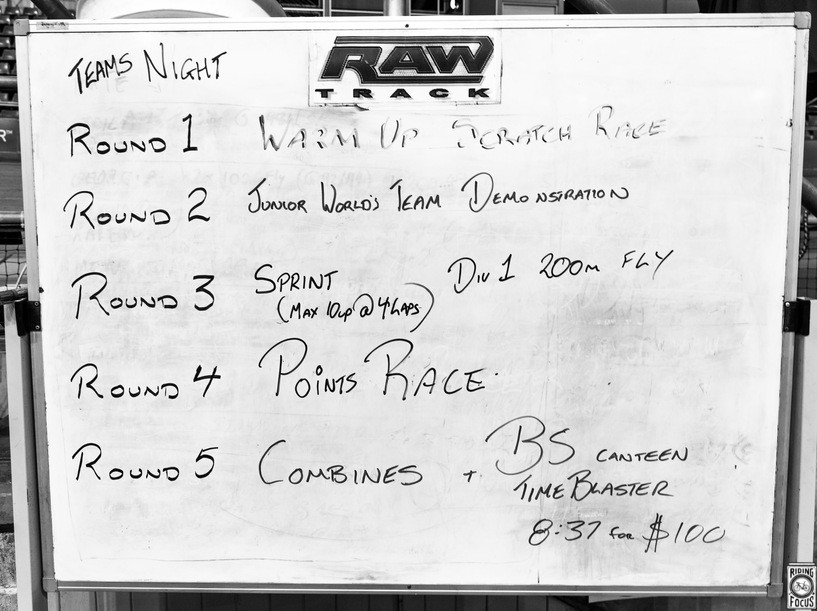 TEAMS NIGHT
RAW
TRACK
ROUND 1 WARM UP SCRATCH RACE
ROUND 2 JUNIOR WORLD'S TEAM DEMONSTRATION
ROUND 3 SPRINT DIV 1 200m FLY
(MAX 10up @ 4LAPS)
ROUND 4 POINTS RACE.
ROUND 5 COMBINES + BS CANTEEN
TIME BLASTER
8:37 for $100
RIDING
FOCUS